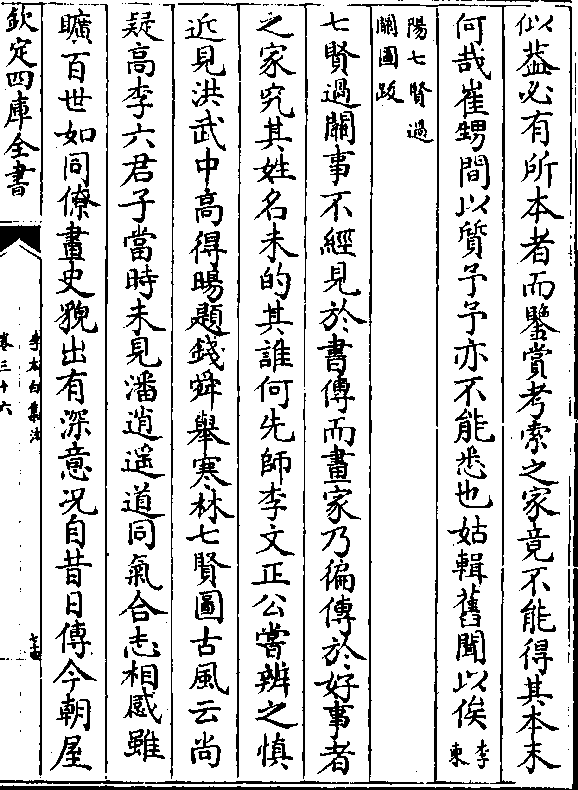 似葢必有所本者而鑒賞考索之家竟不能得其本末
何哉崔甥間以質予予亦不能悉也姑輯舊聞以俟李東
陽七賢過關圖跋
七賢過關事不經見於書傳而畫家乃徧傳於好事者
之家究其姓名未的其誰何先師李文正公嘗辨之慎
近見洪武中高得暘題錢舜舉寒林七賢圖古風云尚
疑高李六君子當時未見潘逍遥道同氣合志相感雖
曠百世如同僚畫史貌出有深意況自昔日傳今朝屋
欽定四庫全書
李太白集注
卷三十六